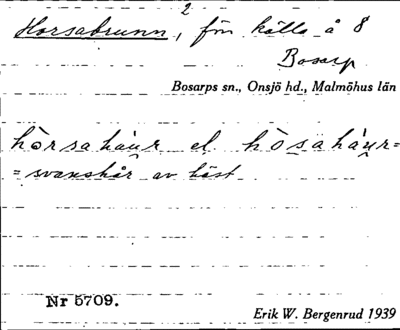 Horsabrunn, förr källa å 8²
Bosarp
Bosarps sn., Onsjö hd., Malmöhus län
hòrsahár el. hòsahár =
= svanshår av häst
Nr 5709.
Erik W. Bergenrud 1939